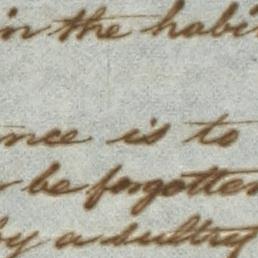 in the habi
nce is to
be forgotten
by a sultry